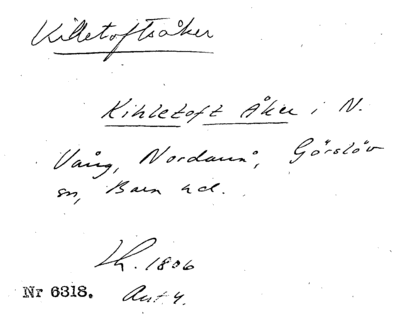 Killetoftsåker
Kihletoft Åker i N.
Vång, Nordanå, Görslöv
sn, Bara hd.
Lh. 1806
Nr 6318. Akt 4.